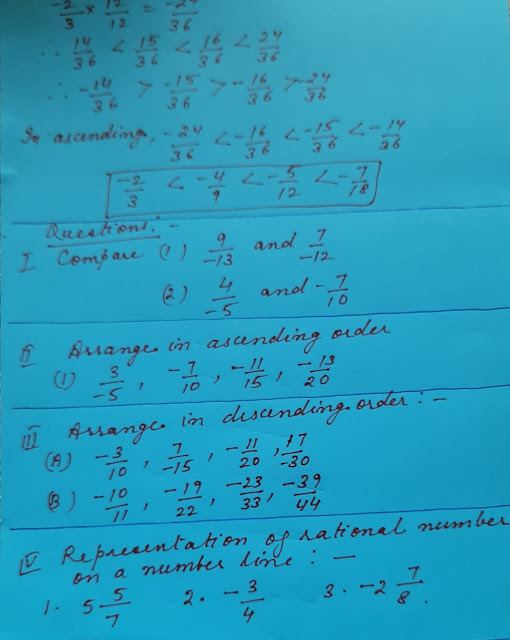 -2/3 × 12/12 = -24/36
∴ 14/36 < 15/36 < 16/36 < 24/36
∴ -14/36 > -15/36 > -16/36 > -24/36
In ascending, -24/36 < -16/36 < -15/36 < -14/36
-2/3 < -4/9 < -5/12 < -7/18
Questions:-
I Compare (1) 9/-13 and 7/-12
(2) 4/-5 and -7/10
II Arrange in ascending order
(1) 3/-5, -7/10, -11/15, -13/20
III Arrange in descending order:-
(A) -3/10, 7/-15, -11/20, 17/-30
(B) -10/11, -19/22, -23/33, -39/44
IV Representation of rational number
on a number line:-
1. 5 5/7 2. -3/4 3. -2 7/8.